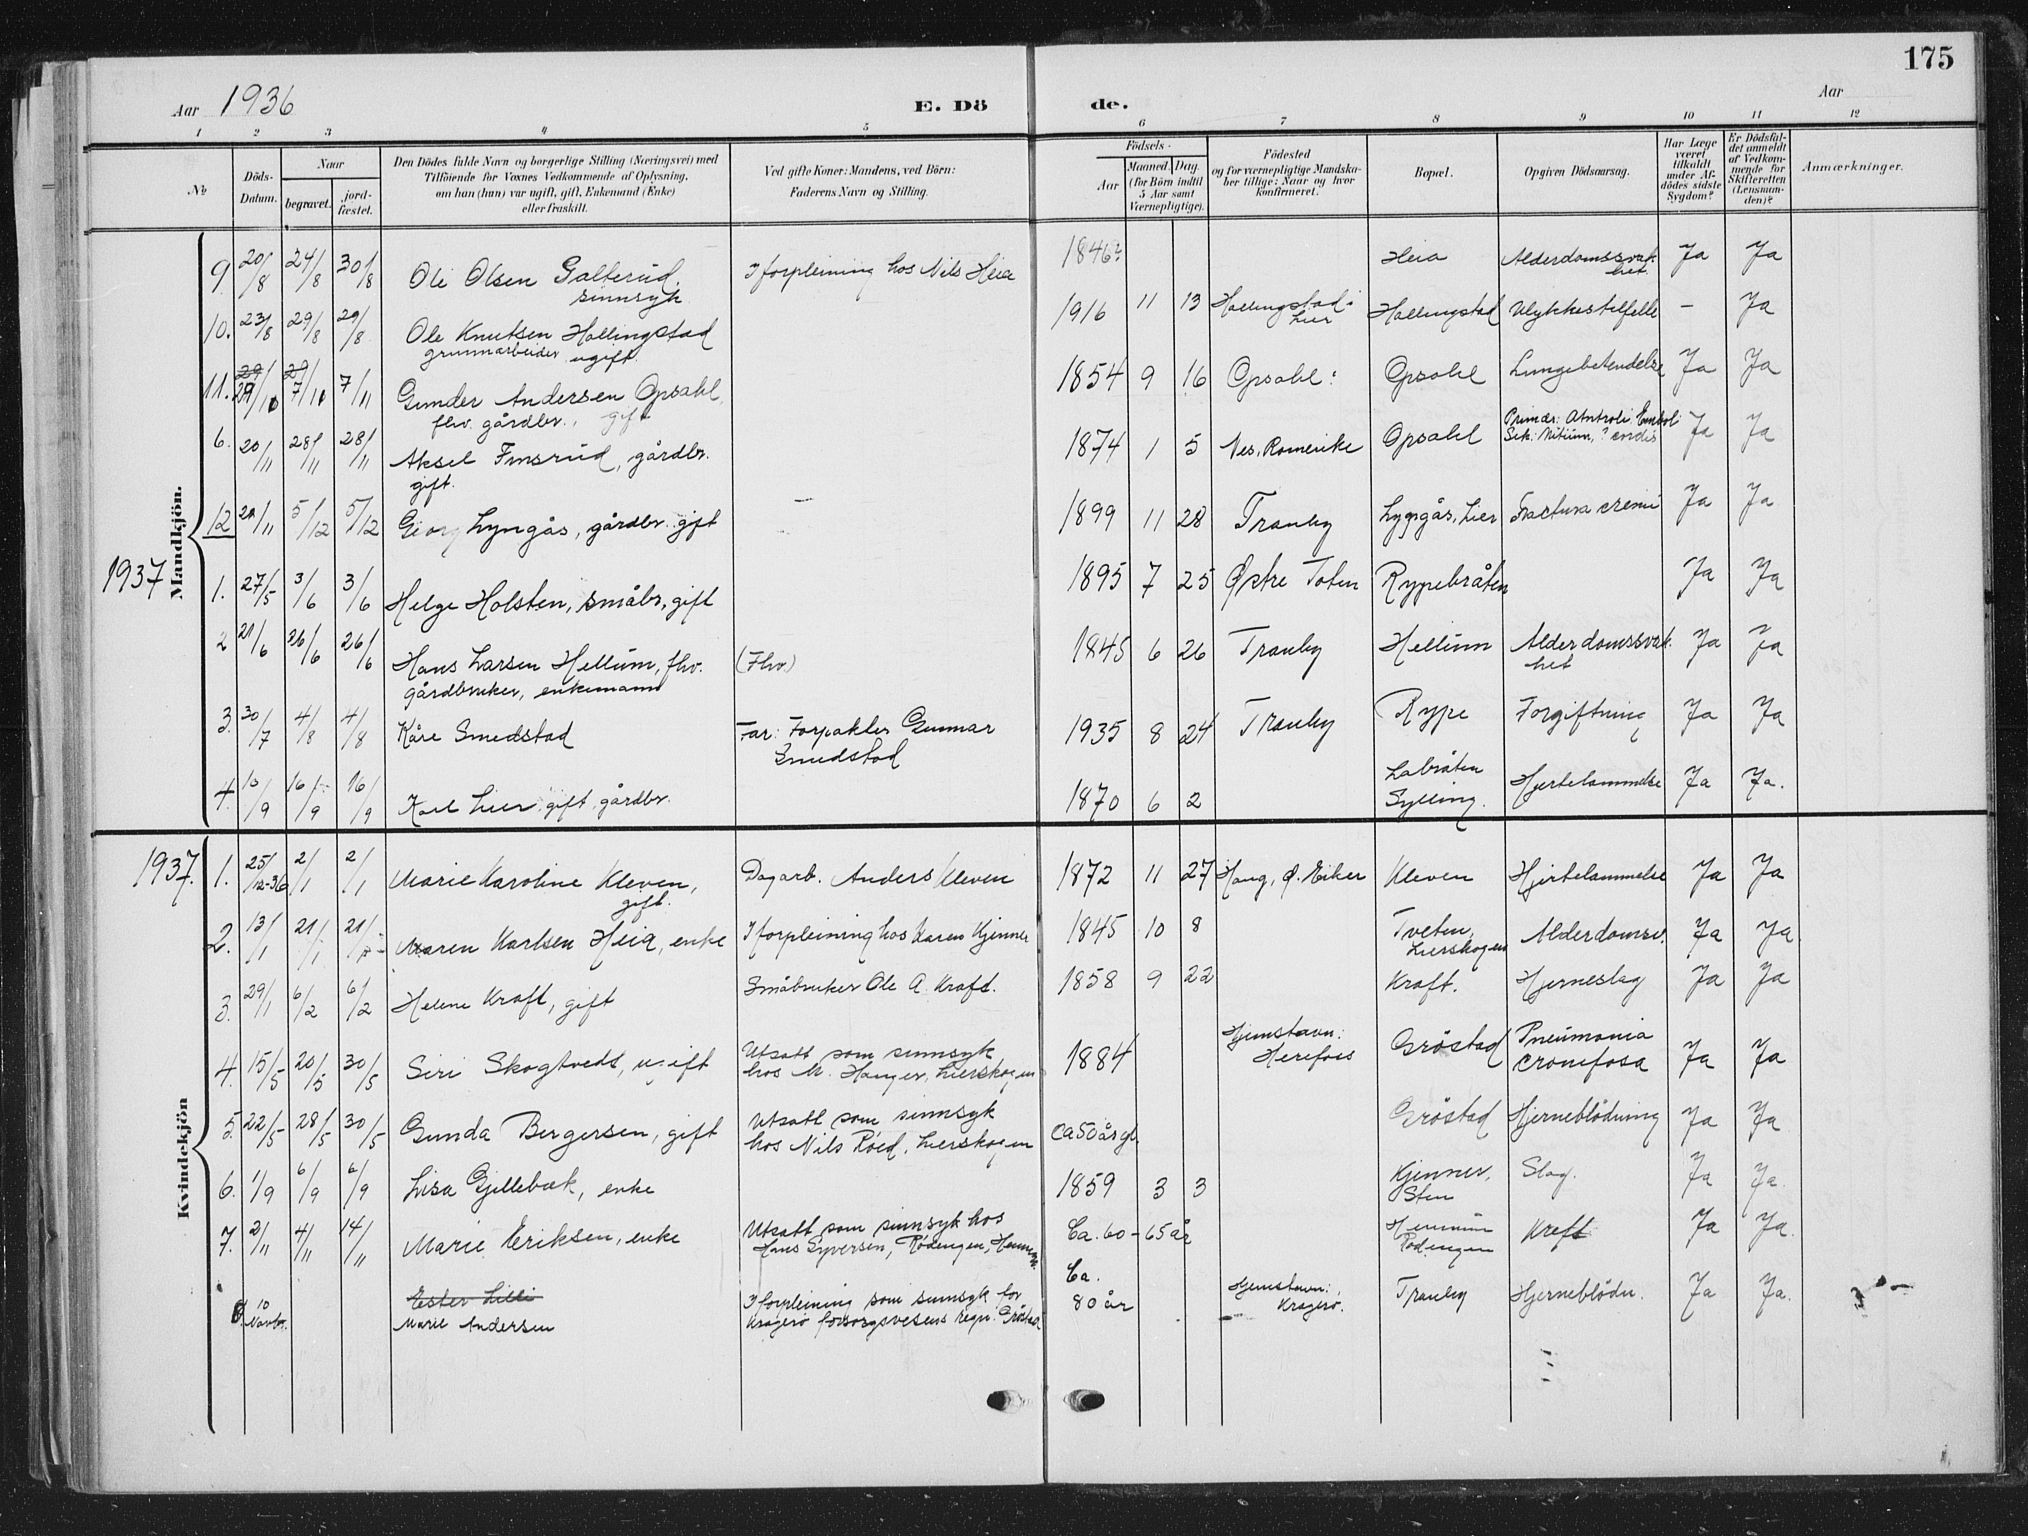 175
Aar 1936 E. Dö de. Aar
1 2 3 4 5 6 7 8 9 10 11 12
No.
Döds-Datum.
Naar
begravet.
jord-fæstet.
Den Dödes fulde Navn og borgerlige Stilling (Næringsvei) med
Tilföiende for Voxnes Vedkommende af Oplysning,
om han (hun) var ugift, gift, Enkemand (Enke)
eller fraskilt.
Ved gifte Koner: Mandens, ved Börn:
Faderens Navn og Stilling.
Födsels-
Aar
Maaned. Dag.
(for Börn indtil
5 Aar samt
Værnepligtige).
Födested
og for værnepligtige Mandska-
ber tillige: Naar og hvor
konfirmeret.
Bopæl.
Opgiven Dödsaarsag.
Har Læge
været
tilkaldt
under Af-
dödes sidste
Sygdom?
Er Dödsfal-
det anmeldt
af Vedkom-
mende for
Skifteretten
(Lensman-
den)?
Anmærkninger.
Mandkjön.
9. 20/8 24/8 30/8 Ole Olsen Galterud, I forpleining hos Nils Heia 1846? Heia Alderdomssvak- Ja Ja
sinnsyk het
10. 23/8 29/8 29/8 Ole Knutsen Hallingstad 1916 11 13 Hallingstad i Hallingstad Ulykkestilfelle – Ja
grunnarbeider ugift. Lier
11. 29/10 7/11 7/11 Gunder Andersen Opsahl, 1854 9 16 Opsahl i Opsahl Lungebetendelse Ja Ja
fhv. gårdbr., gift
6. 20/11 28/11 28/11 Aksel Finsrud, gårdbr. 1874 1 5 Nes, Romerike Opsahl Primær: Embol. Ja Ja
gift. Sek:
12 21/11 5/12 5/12 Georg Lyngås, gårdbr. gift – 1899 11 28 Tranby Lyngås, Lier Fractura cranii Ja Ja
1937
1. 27/5 3/6 3/6 Helge Holsten, småbr, gift 1895 7 25 Østre Toten Rypebråten Ja Ja
2 21/6 26/6 26/6 Hans Larsen Hellum, fhv. (Fhv.) 1845 6 26 Tranby Hellum Alderdomssvak- Ja Ja
gårdbruker, enkemann het
3. 30/7 4/8 4/8 Kåre Smedstad Far: Forpakter Gunnar 1935 8 24 Tranby Rype Forgiftning Ja Ja
Smedstad
4. 10/9 16/9 16/9 Karl Lier, gift, gårdbr. 1870 6 2 Labråten Hjertelammelse Ja Ja.
Sylling.
Kvindekjön
1937.
1. 25/12-36 2/1 2/1 Marie Karoline Kleven, Dagarb. Anders Kleven 1872 11 27 Haug, Ø. Eiker Kleven Hjertelammelse Ja Ja
gift.
2. 13/1 21/1 21/1 Maren Karlsen Heia, enke I forpleining hos Karen Kjenner 1845 10 8 Tveten, Alderdomsv. Ja Ja.
Lierskogen
3. 29/1 6/2 6/2 Helene Kraft, gift Småbruker Ole A. Kraft. 1858 9 22 Kraft. Hjerneslag Ja Ja
4. 15/5 20/5 30/5 Siri Skogtvedt, ugift Utsatt som sinnsyk 1884 Hjemstavn: Gröstad Pneumonia Ja Ja
hos M. Hanger, Lierskogen Herefoss
5. 22/5 28/5 30/5 Gunda Bergersen, gift Utsatt som sinnsyk ca 50 år gl. Gröstad Hjerneblödning Ja Ja
hos Nils Röed, Lierskogen
6. 1/9 6/9 6/9 Lisa Gjellebæk, enke 1859 3 3 Kjenner, Slag. Ja Ja.
Sten
7. 2/11 4/11 14/11 Marie Eriksen, enke Utsatt som sinnsyk hos Ca. 60-65 år Hennum Kreft Ja Ja.
Hans Syversen, Rödengen, Hennum Rödengen
8. 10 Novbr. Ester Lilli I forpleining som sinnsyk for Ca. 80 år Hjemstavn: Tranby Hjerneblödn. Ja Ja.
Marie Andersen Kragerö forsorgsvesens regn. Gröstad Kragerö.